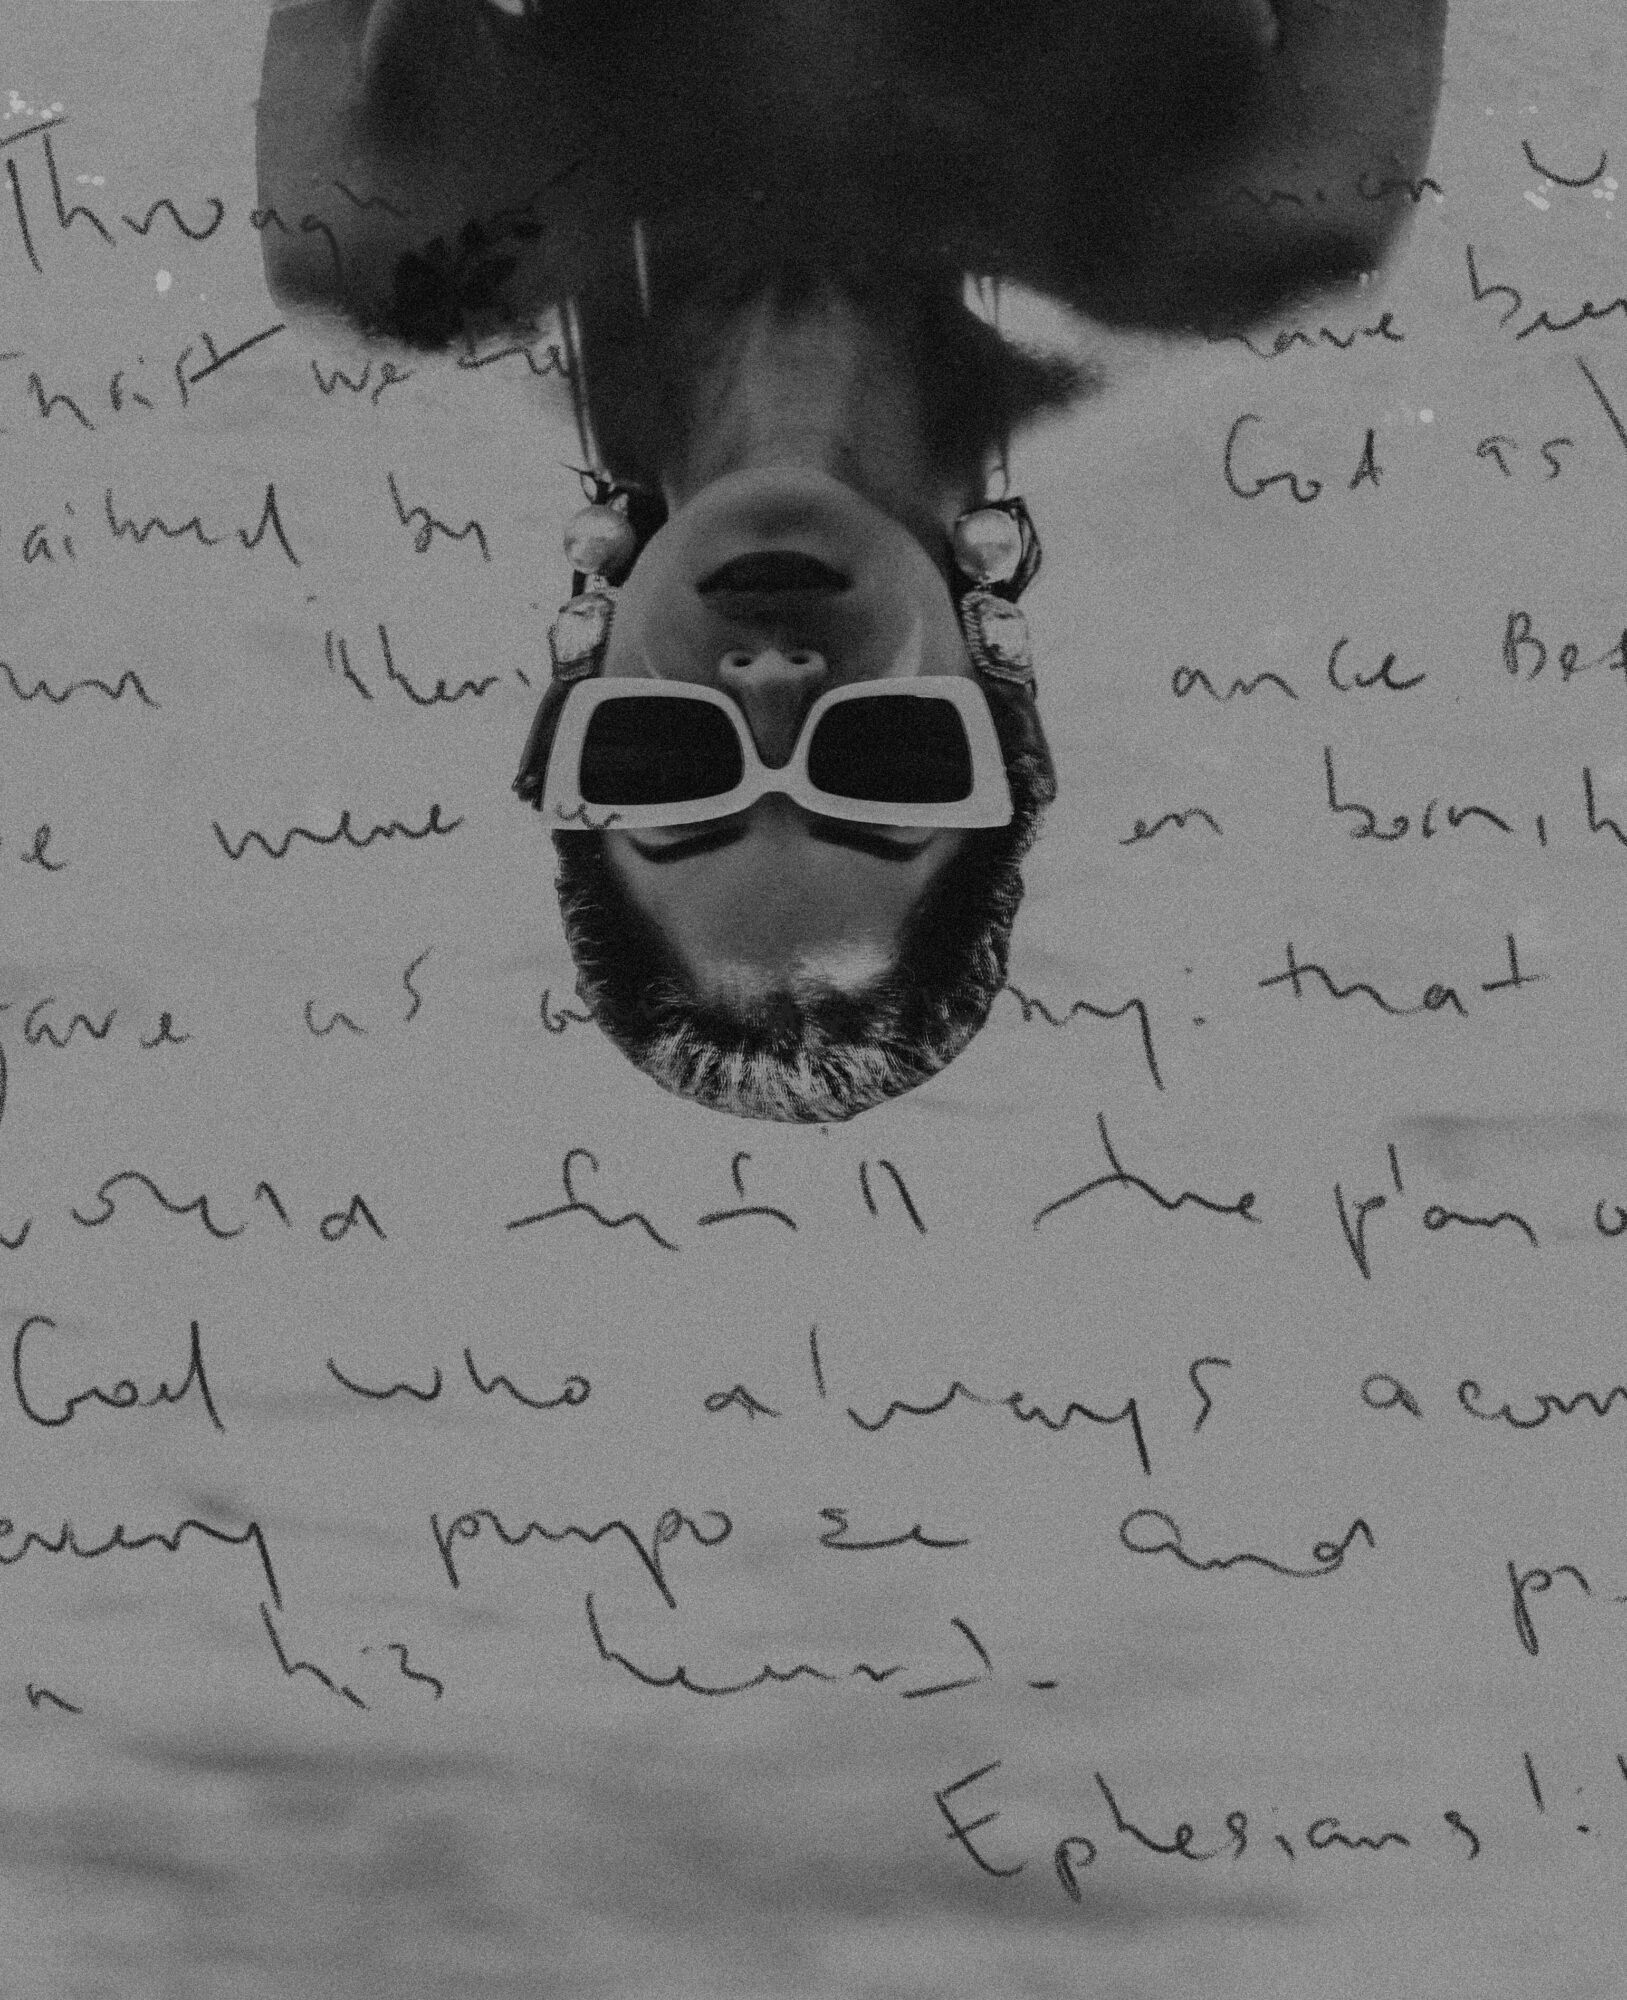 Through
hrist we have been
aimed by God as
ance Bef
e were en born, h
gave us my: that
would fulfill the plan o
God who always acom
every purpose and
n his heart.
Ephesians 1: